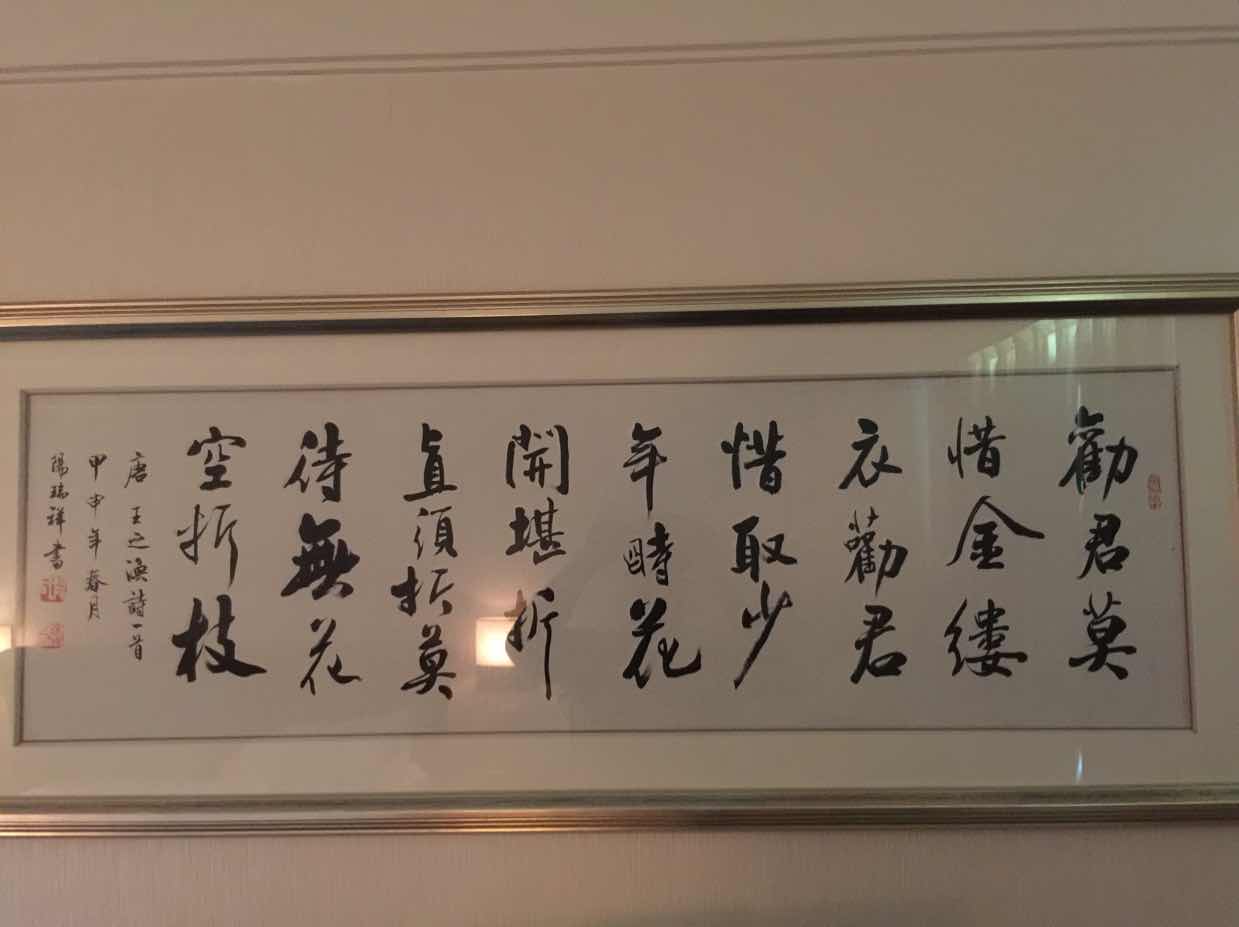 勸君莫
惜金縷
衣勸君
惜取少
年時花
開堪折
直須折莫
待無花
空折枝
唐王之渙詩一首
甲申年春月
陽瑞祥書